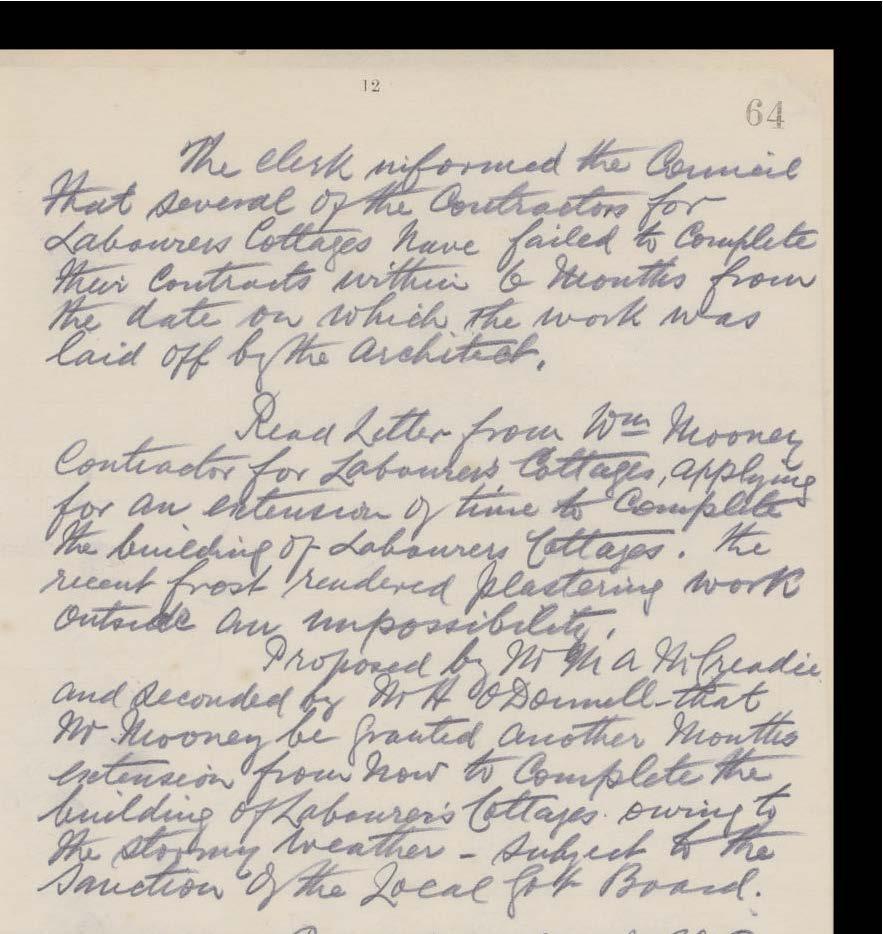 12
64
The Clerk informed the Council
that several of the Contractors for
Labourers Cottages have failed to Complete
their Contracts within 6 Months from
the date on which the work was
laid off by the Architect.
Read Letter from Wm Mooney
Contractor for Labourer's Cottages, applying
for an extension of time to Complete
the building of Labourers Cottages. The
recent frost rendered plastering work
outside an impossibility.
Proposed by Mr M A McCreadie
and seconded by Mr H O'Donnell - that
Mr Mooney be granted another Months
extension from now to Complete the
building of Labourer's Cottages owing to
the stormy weather - subject to the
Sanction of the Local Govt Board.